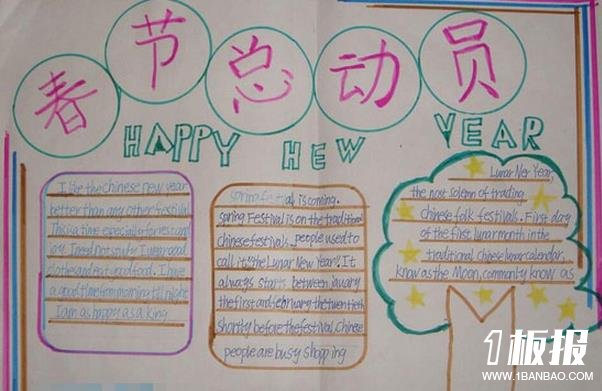 春节总动员
HAPPY HEW YEAR
I like the chinese new year
better than any other festival
This is a time especial for rest and
joy. I need not study. I wear good
clothes and eat good food. I have
a good time from morning till night
I am as happy as a king.
spring festival is coming.
spring Festival is on the traditional
chinese festivals. people used to
call it "the Lunar New Year". It
always starts between january
the first and february the twentieth
shortly before the festival, Chinese
people are busy shopping
Lunar Ner Year,
the most solemn of trading
chinese folk festivals. First day
of the first lunar month in the
traditional chinese lunar calendar,
know as the Moon, commonly know as
1板报
WWW.1BANBAO.COM